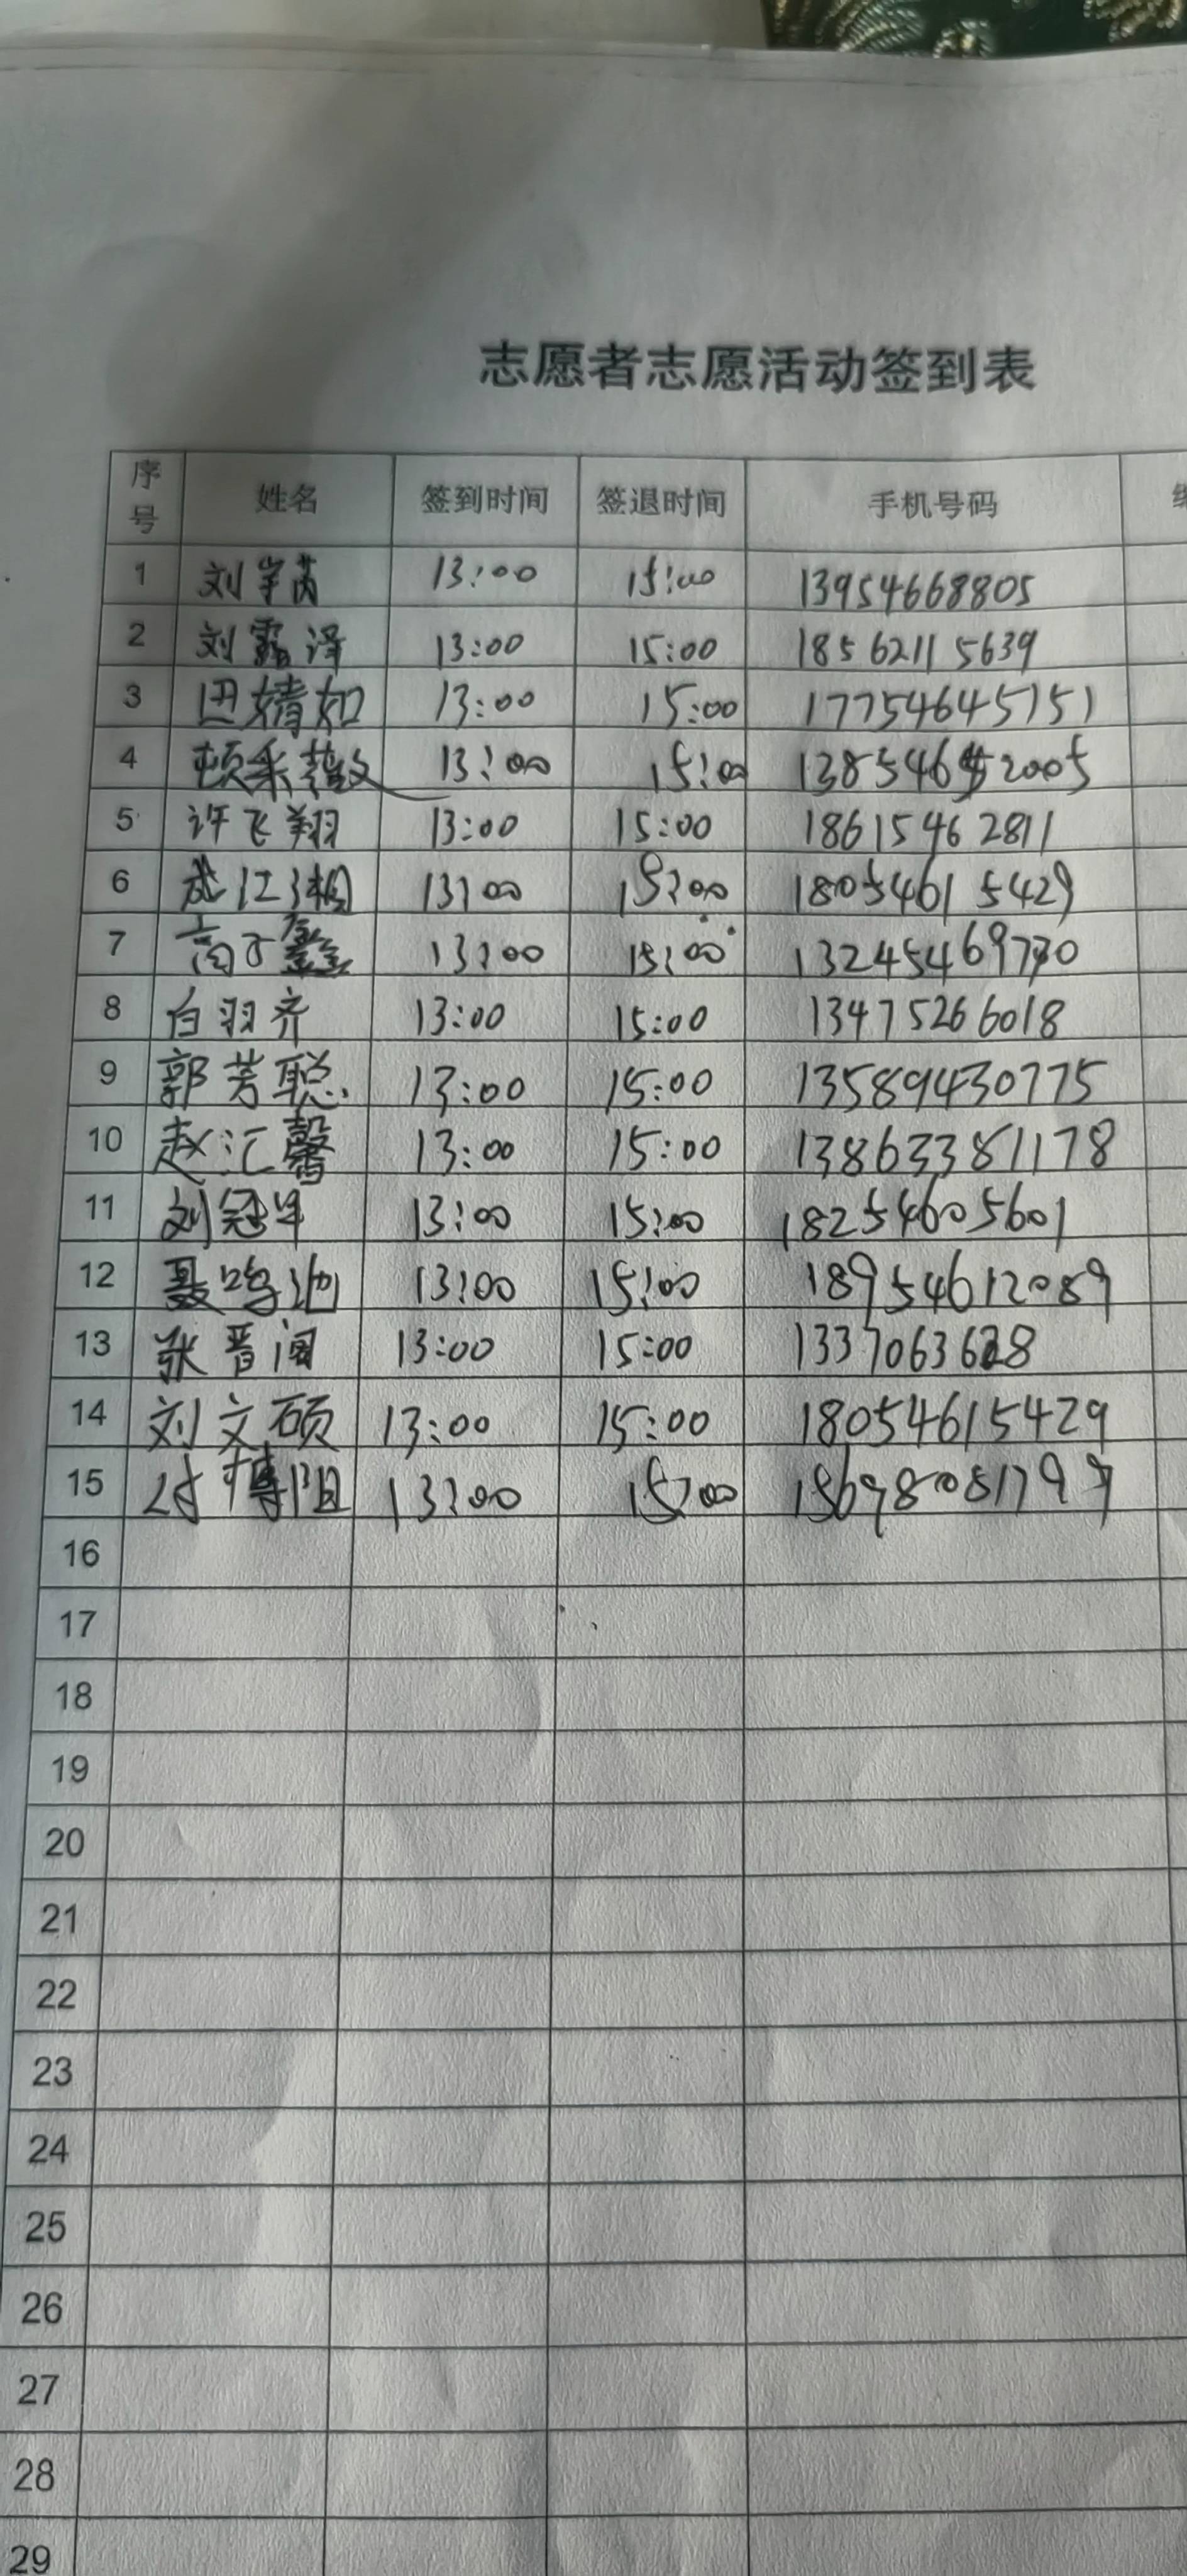 志愿者志愿活动签到表
序号 姓名 签到时间 签退时间 手机号码
1 刘宇芮 13:00 15:00 13954668805
2 刘露泽 13:00 15:00 18562115639
3 巴婧如 13:00 15:00 17754645151
4 13:00 15:00
5 许飞翔 13:00 15:00 18615462811
6 13:00 15:00 18054615429
7 高子鑫 13:00 15:00
8 白羽齐 13:00 15:00 13475266018
9 郭芳聪 13:00 15:00 13589430775
10 赵汇馨 13:00 15:00 13863381178
11 刘冠军 13:00 15:00 18254605601
12 聂 13:00 15:00 18954612089
13 张晋闻 13:00 15:00
14 刘文硕 13:00 15:00 18054615429
15 付博 13:00 15:00
16
17
18
19
20
21
22
23
24
25
26
27
28
29